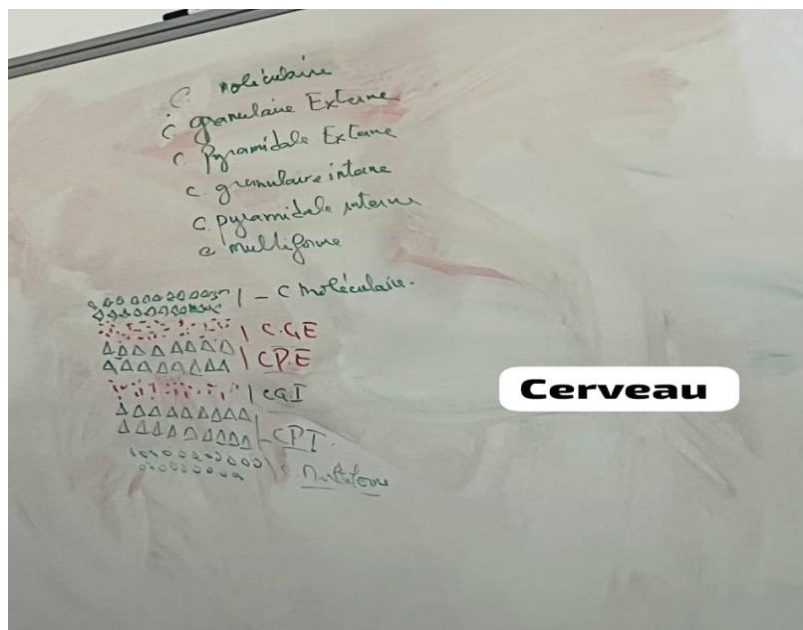 C. moléculaire
C. granulaire Externe
C. Pyramidale Externe
C. granulaire interne
C. pyramidale interne
C multiforme
- C moléculaire.
C.G.E
CP.E
CGI
CPI.
C Multiforme
Cerveau